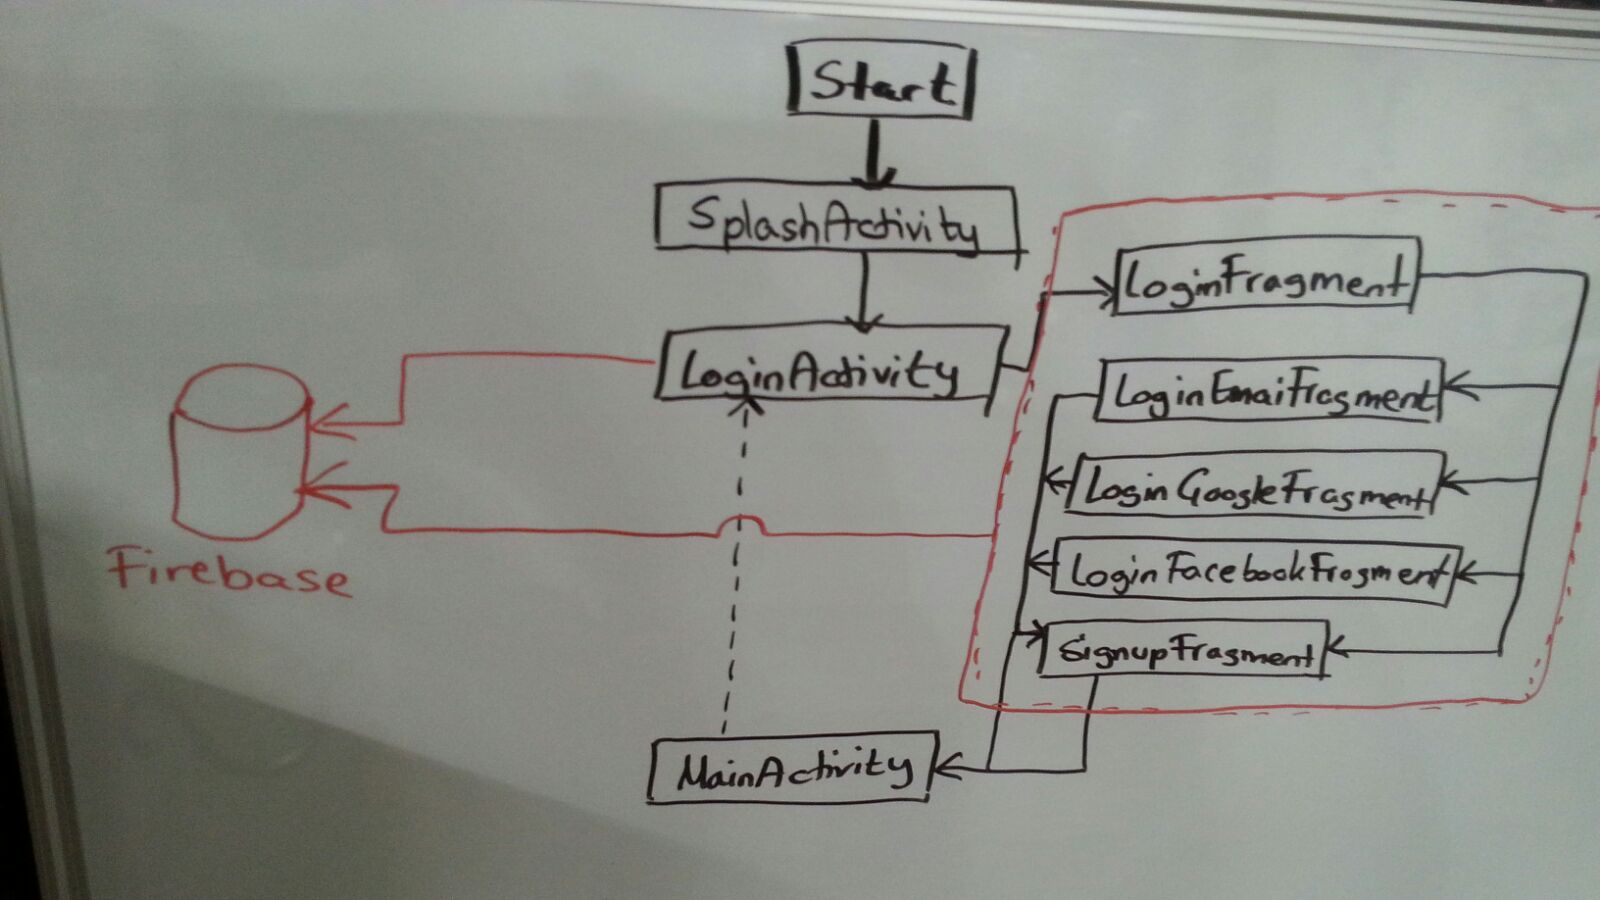 Start
SplashActivity
LoginActivity
LoginFragment
LoginEmailFragment
LoginGoogleFragment
LoginFacebookFragment
SignupFragment
MainActivity
Firebase